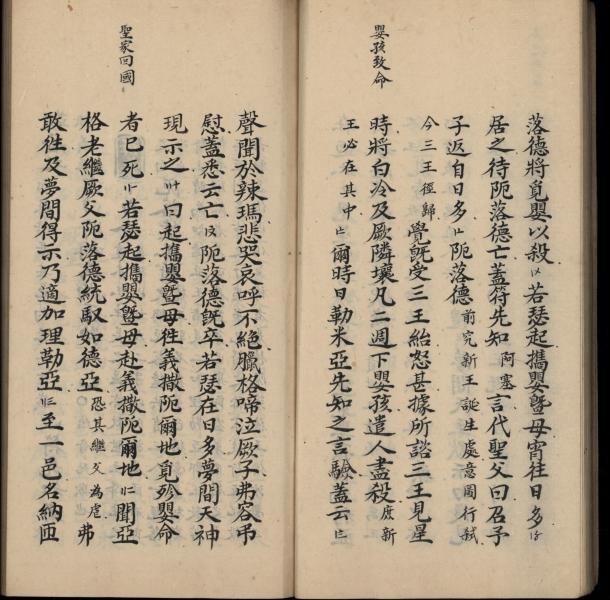 嬰孩致命
落德將覓嬰以殺 以 若瑟起攜嬰曁母宵往日多
居之待阨落德亡蓋符先知 阿塞 言代聖父曰召予
子返自日多 阨落德 前究新王誕生處意圖行弒
今三王徑歸 覺旣受三王紿怒甚據所諮三王見星
時將白冷及厥隣壤凡二週下嬰孩遣人盡殺 庶新
王必在其中 爾時日勒米亞先知之言驗蓋云
聖家回國
聲聞於辣瑪悲哭哀呼不絕臘格啼泣厥子弗容弔
慰蓋悉云亡 阨落德旣卒若瑟在日多夢間天神
現示之 曰起攜嬰曁母徃義撒阨爾地覓殄嬰命
者已死 若瑟起攜嬰曁母赴義撒阨爾地 聞亞
格老繼厥父阨落德統馭如德亞 恐其繼父為虐 弗
敢徃及夢間得示乃適加理勒亞 至一邑名納匝